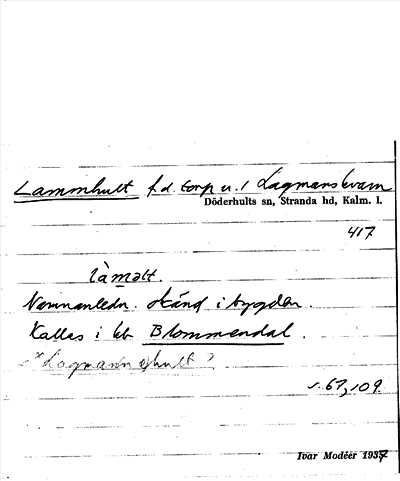 Lammhult f.d. torp u. / Lagmanskvarn
Döderhults sn, Stranda hd, Kalm. l.
417
làməlt.
Namnanledn. okänd i bygden.
Kallas i kb Blommendal.
<*Lagmanshult?
s. 67, 109.
Ivar Modéer 1937